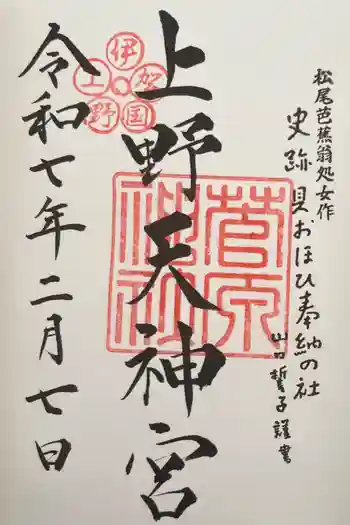 松尾芭蕉翁処女作
史跡 貝おほひ奉納の社
山口誓子謹書
上野天神宮
菅原神社
伊賀国上野
令和七年二月七日